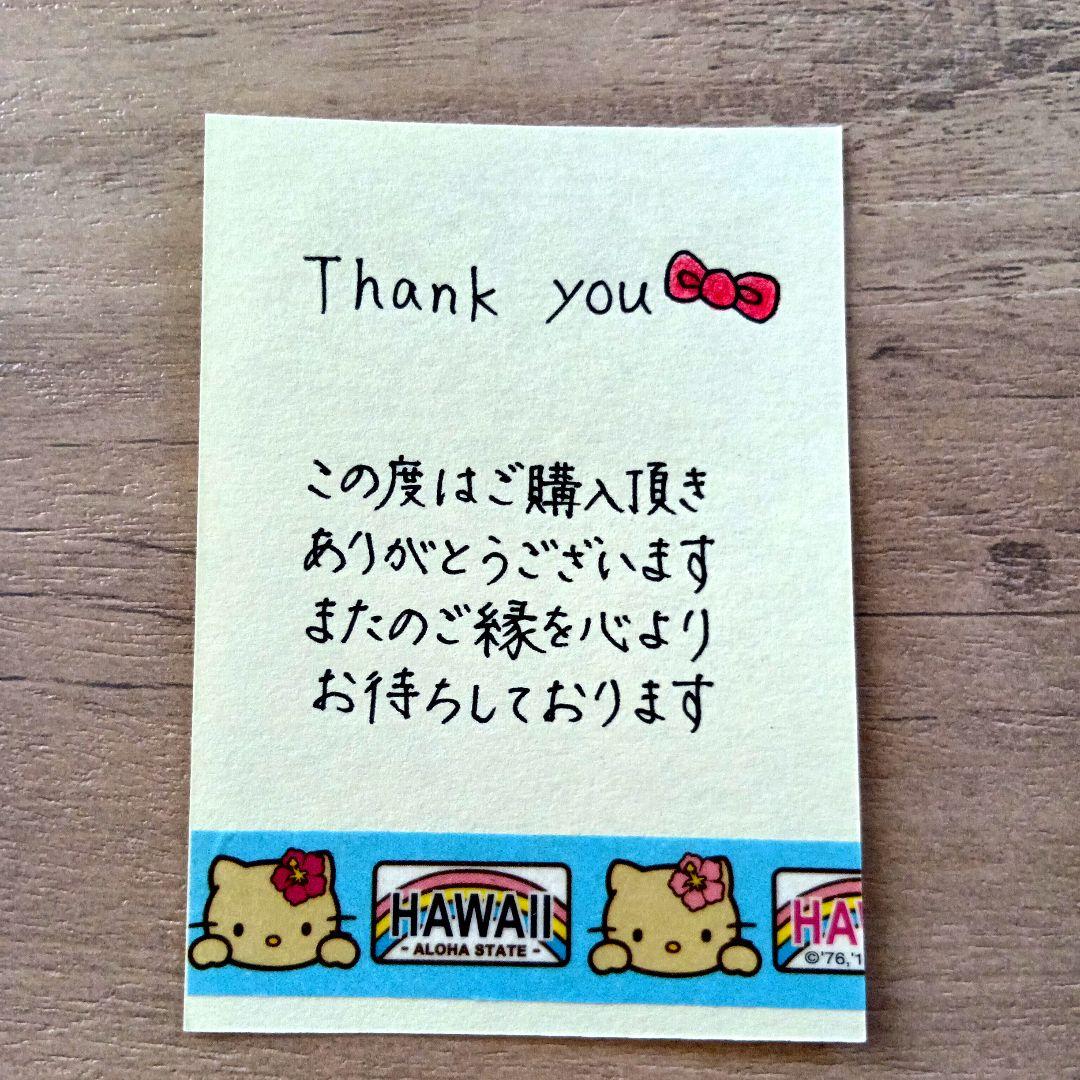 Thank you
この度はご購入頂き
ありがとうございます
またのご縁を心より
お待ちしております
HAWAII
- ALOHA STATE -
HAW
©'76,'1